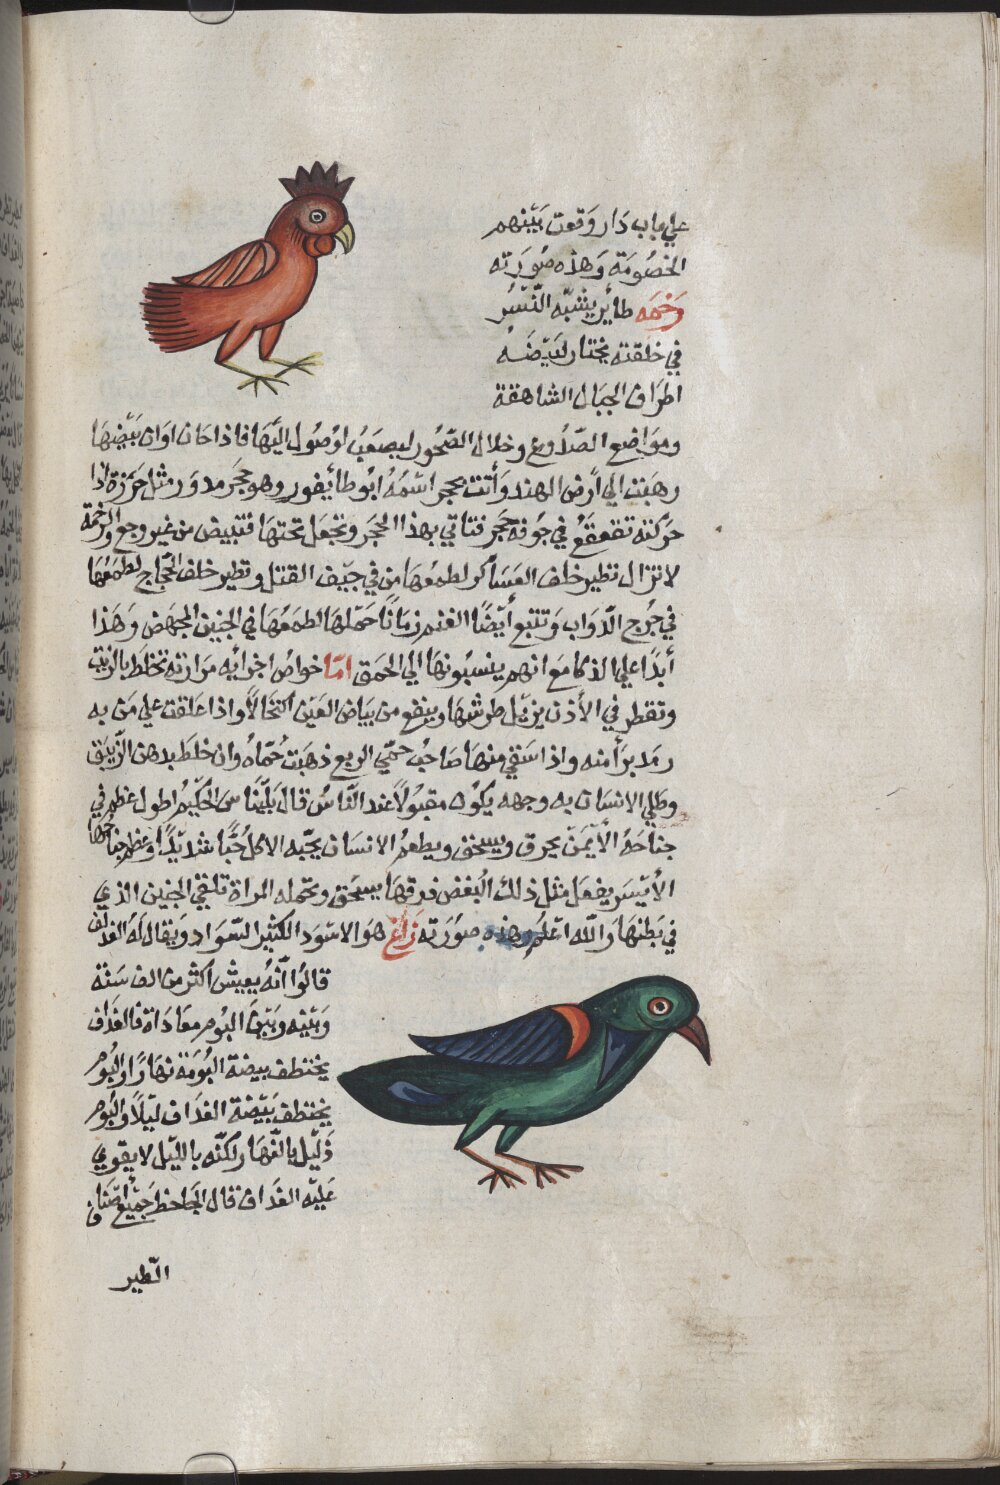 علي باب دار وقعت بينهم
الخصومة وهذه صورته
رخمه طاير يشبه النسر
في خلقته يختار لبيضه
اطراف الجبال الشاهقة
ومواضع الصدوع وخلال الصخور ليصعب لوصول اليها فاذا حان اوان بيضها
رهبت الي ارض الهند وأتت بحجر اسمه ابو طايفور وهو حجر مدور مثل جرزة اذا
حركته تقعقع في جوفه حجر فتاتي بهذا الحجر وتجعل تحتها فتبيض من غير وجع والرخمة
لا تزال تطير خلف العساكر لطمعها من في جيف القتل وتطير خلف الحجاج لطمعها
في جرح الدواب وتتبع أيضا الغنم زمانا حملها لطمعها في الجنين المجهض وهذا
أبدا علي الذكا مع انهم ينسبونها الي الحمق اما خواص اجزايه مرارته تخلط بالزيت
وتقطر في الأذن يزيل طرشها وينفع من بياض العين اكتحالا واذا علقت علي من به
رمد برأ منه واذا سقي منها صاحب حمي الربع ذهبت حماه وان خلط بدهن الزيبق
وطلي الانسان به وجهه يكون مقبولا عند الناس قال بليناس الحكيم اطول عظم في
جناحه الأيمن يحرق ويسحق ويطعم الانسان يحبه الاكل حبا شديدا وعظم جناحها
الأيسر يفعل مثل ذلك البغض فرقها يسحق وتحمله المراة تلقي الجنين الذي
في بطنها والله اعلم وهذه صورته زاغ هو الاسود الكثير السواد ويقال له الغداف
قالوا أنه يعيش اكثر من الف سنة
وبينه وبين البوم معاداة فالغداف
يختطف بيضة البومة نهارا والبوم
يختطف بيضة الغداف ليلا والبوم
ذليل بالنهار لكنه بالليل لا يقوي
عليه الغداف قال الجاحظ جميع اصناف
الطير